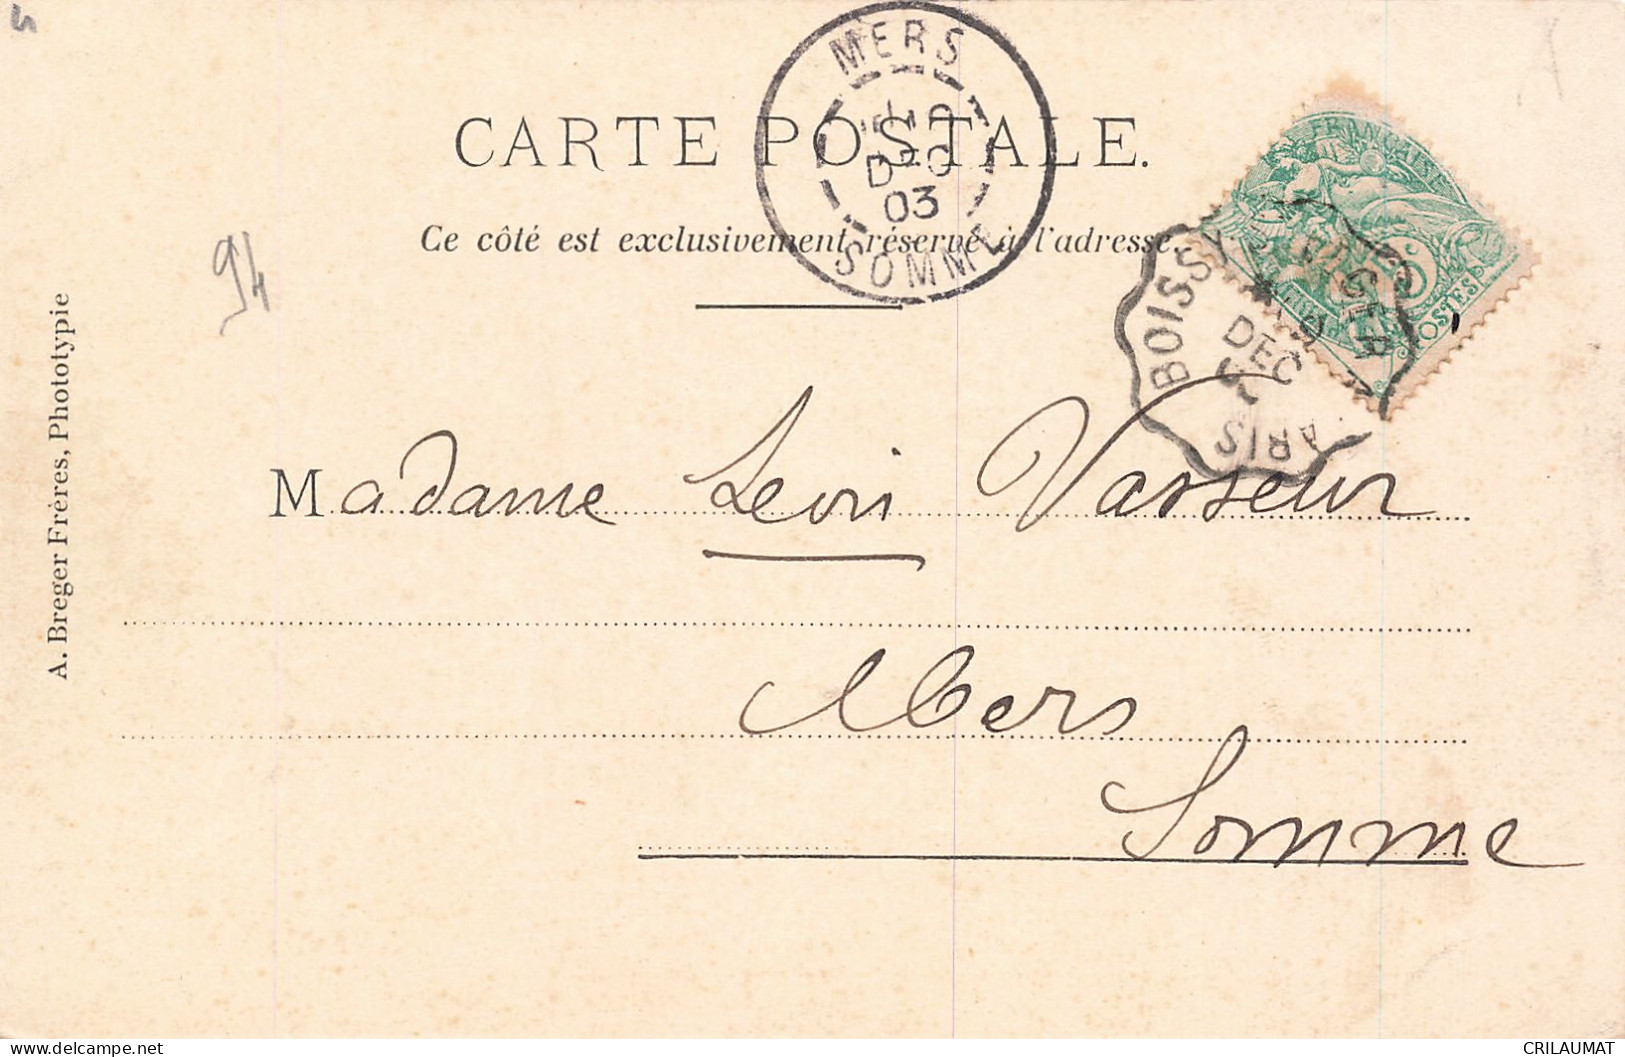 MERS
DEC
03
SOMME
CARTE POSTALE.
Ce côté est exclusivement réservé à l'adresse.
FRANÇAISE
POSTES
BOISSY
DEC
ARIS
94
A. Breger Frères, Phototypie
Madame Léon Vasseur
Mers
Somme
delcampe.net
CRILAUMAT